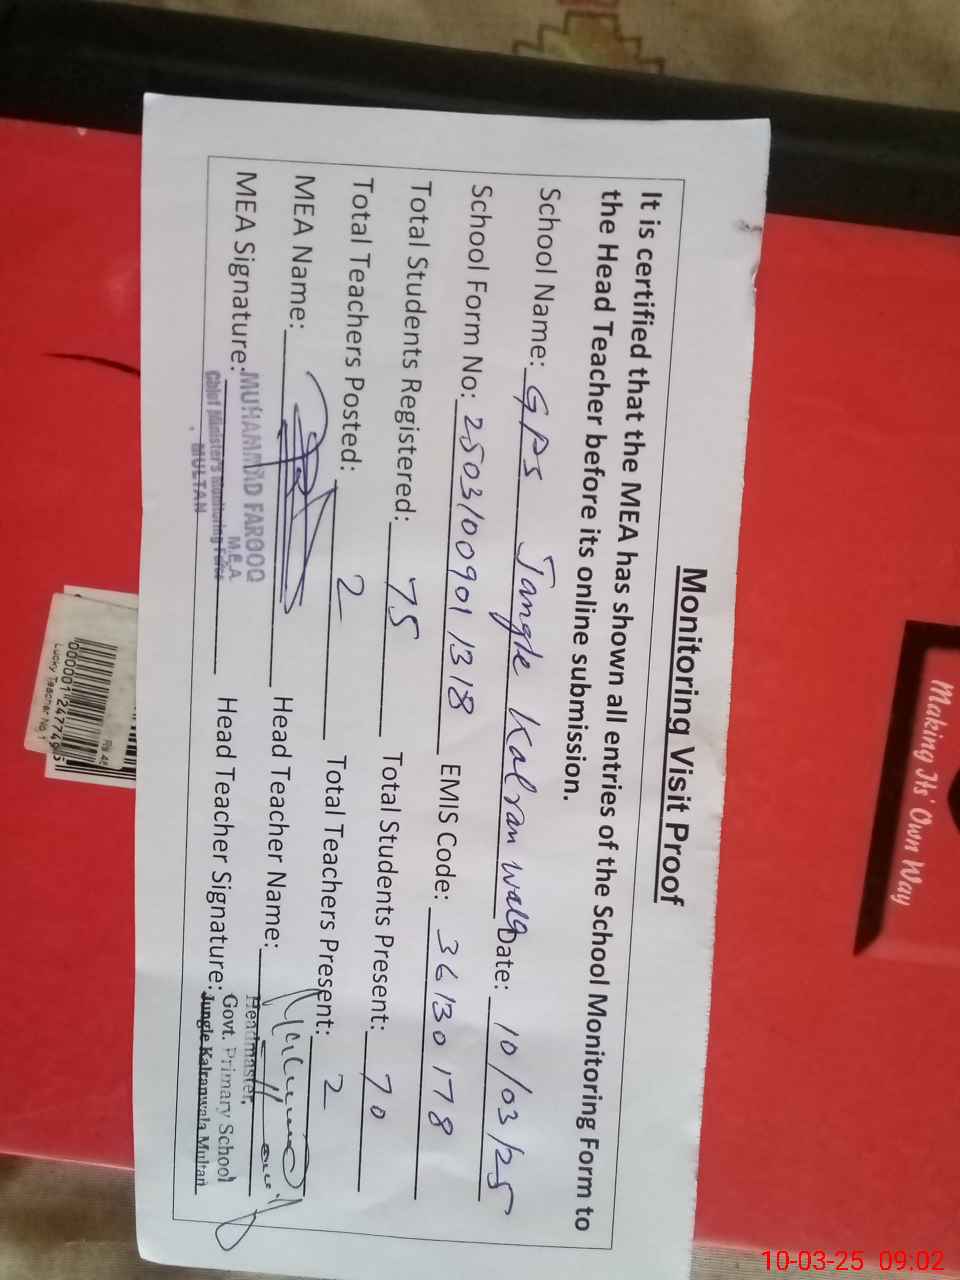 Monitoring Visit Proof
It is certified that the MEA has shown all entries of the School Monitoring Form to
the Head Teacher before its online submission.
School Name: GPS Jangle Kalran wala Date: 10/03/25
School Form No: 250310090 1318 EMIS Code: 36130178
Total Students Registered: 75 Total Students Present: 70
Total Teachers Posted: 2 Total Teachers Present: 2
MEA Name: Head Teacher Name:
MEA Signature: Head Teacher Signature:
MUHAMMAD FAROOQ
M.E.A
Chief Minister's Monitoring Force
MULTAN
Headmaster,
Govt. Primary School
Jungle Kalranwala Multan
Making Its' Own Way
Rs 45
Lucky Teacher No 1
10-03-25 09:02